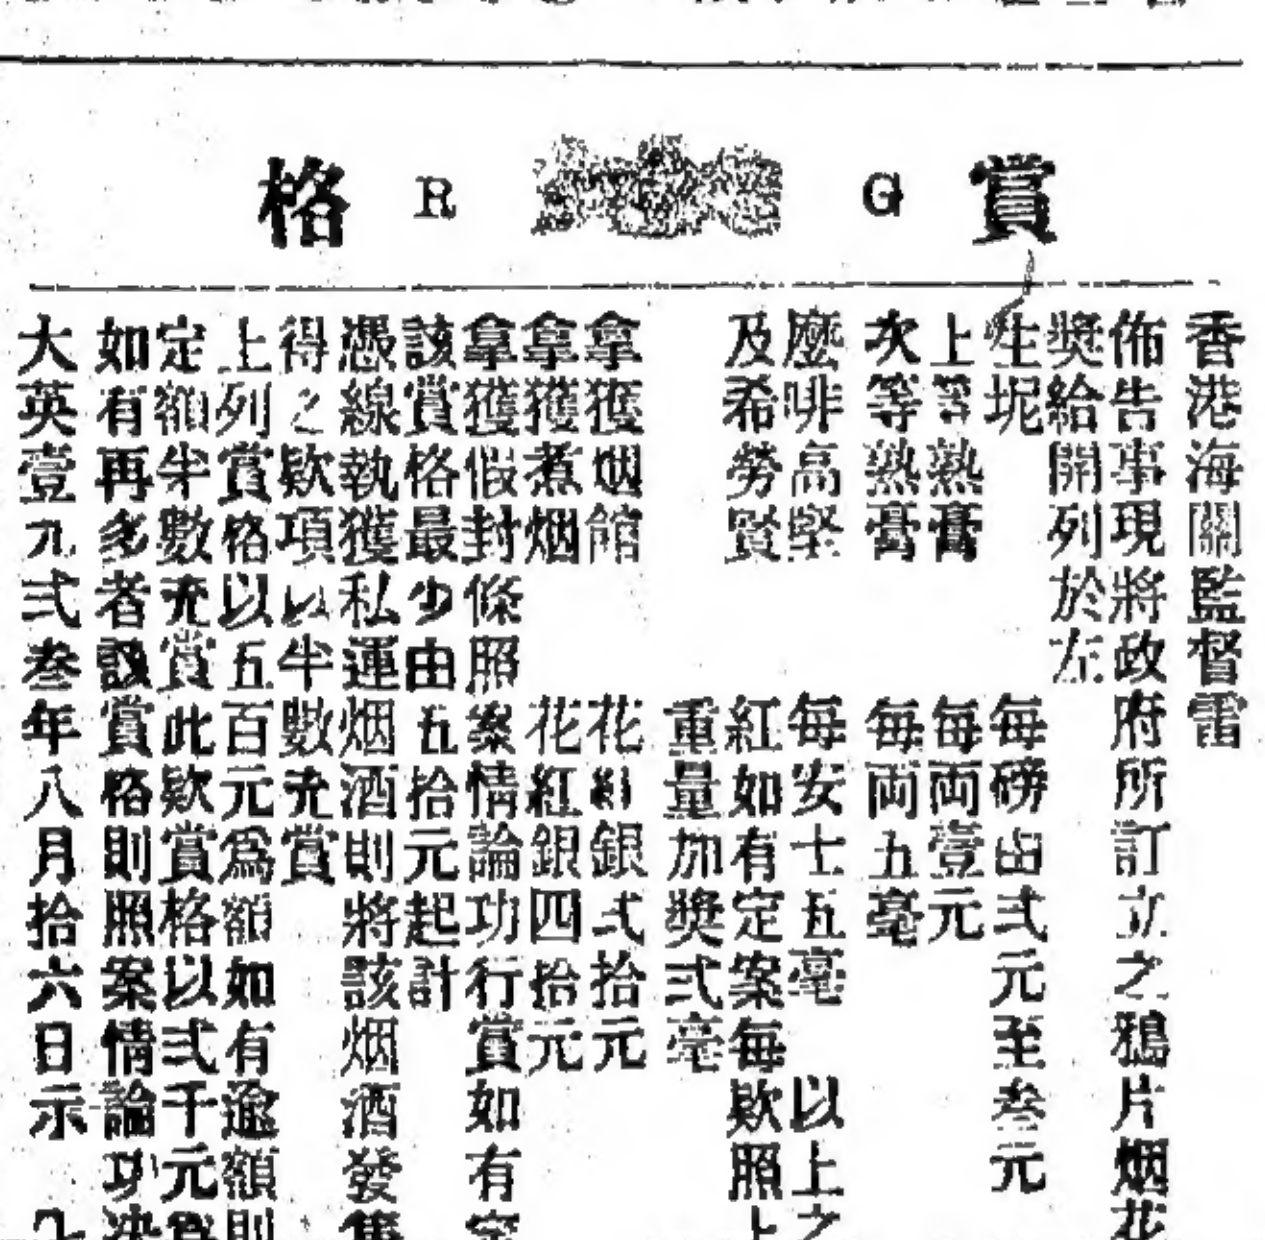 賞 G R 格
香港海關監督雷
佈告事現將政府所訂立之鴉片烟花
奬給開列於左
生坭 每磅由弍元至叁元
上等熟膏 每両壹元
次等熟膏 每両五毫
麼啡高堅 每安士五毫 以上之
及希勞賢 紅如有定案每欵照上
重量加奬弍毫
拿獲烟館 花紅銀弍拾元
拿獲煮烟 花紅銀四拾元
拿獲假封條照案情論功行賞如有定
該賞格最少由五拾元起計
憑線執獲私運烟酒則將該烟酒發售
得之欵項以半數充賞
上列賞格以五百元為額如有逾額則
定額半數充賞此欵賞格以弍千元為
如有再多者該賞格則照案情論功决
大英壹九弍叁年八月拾六日示